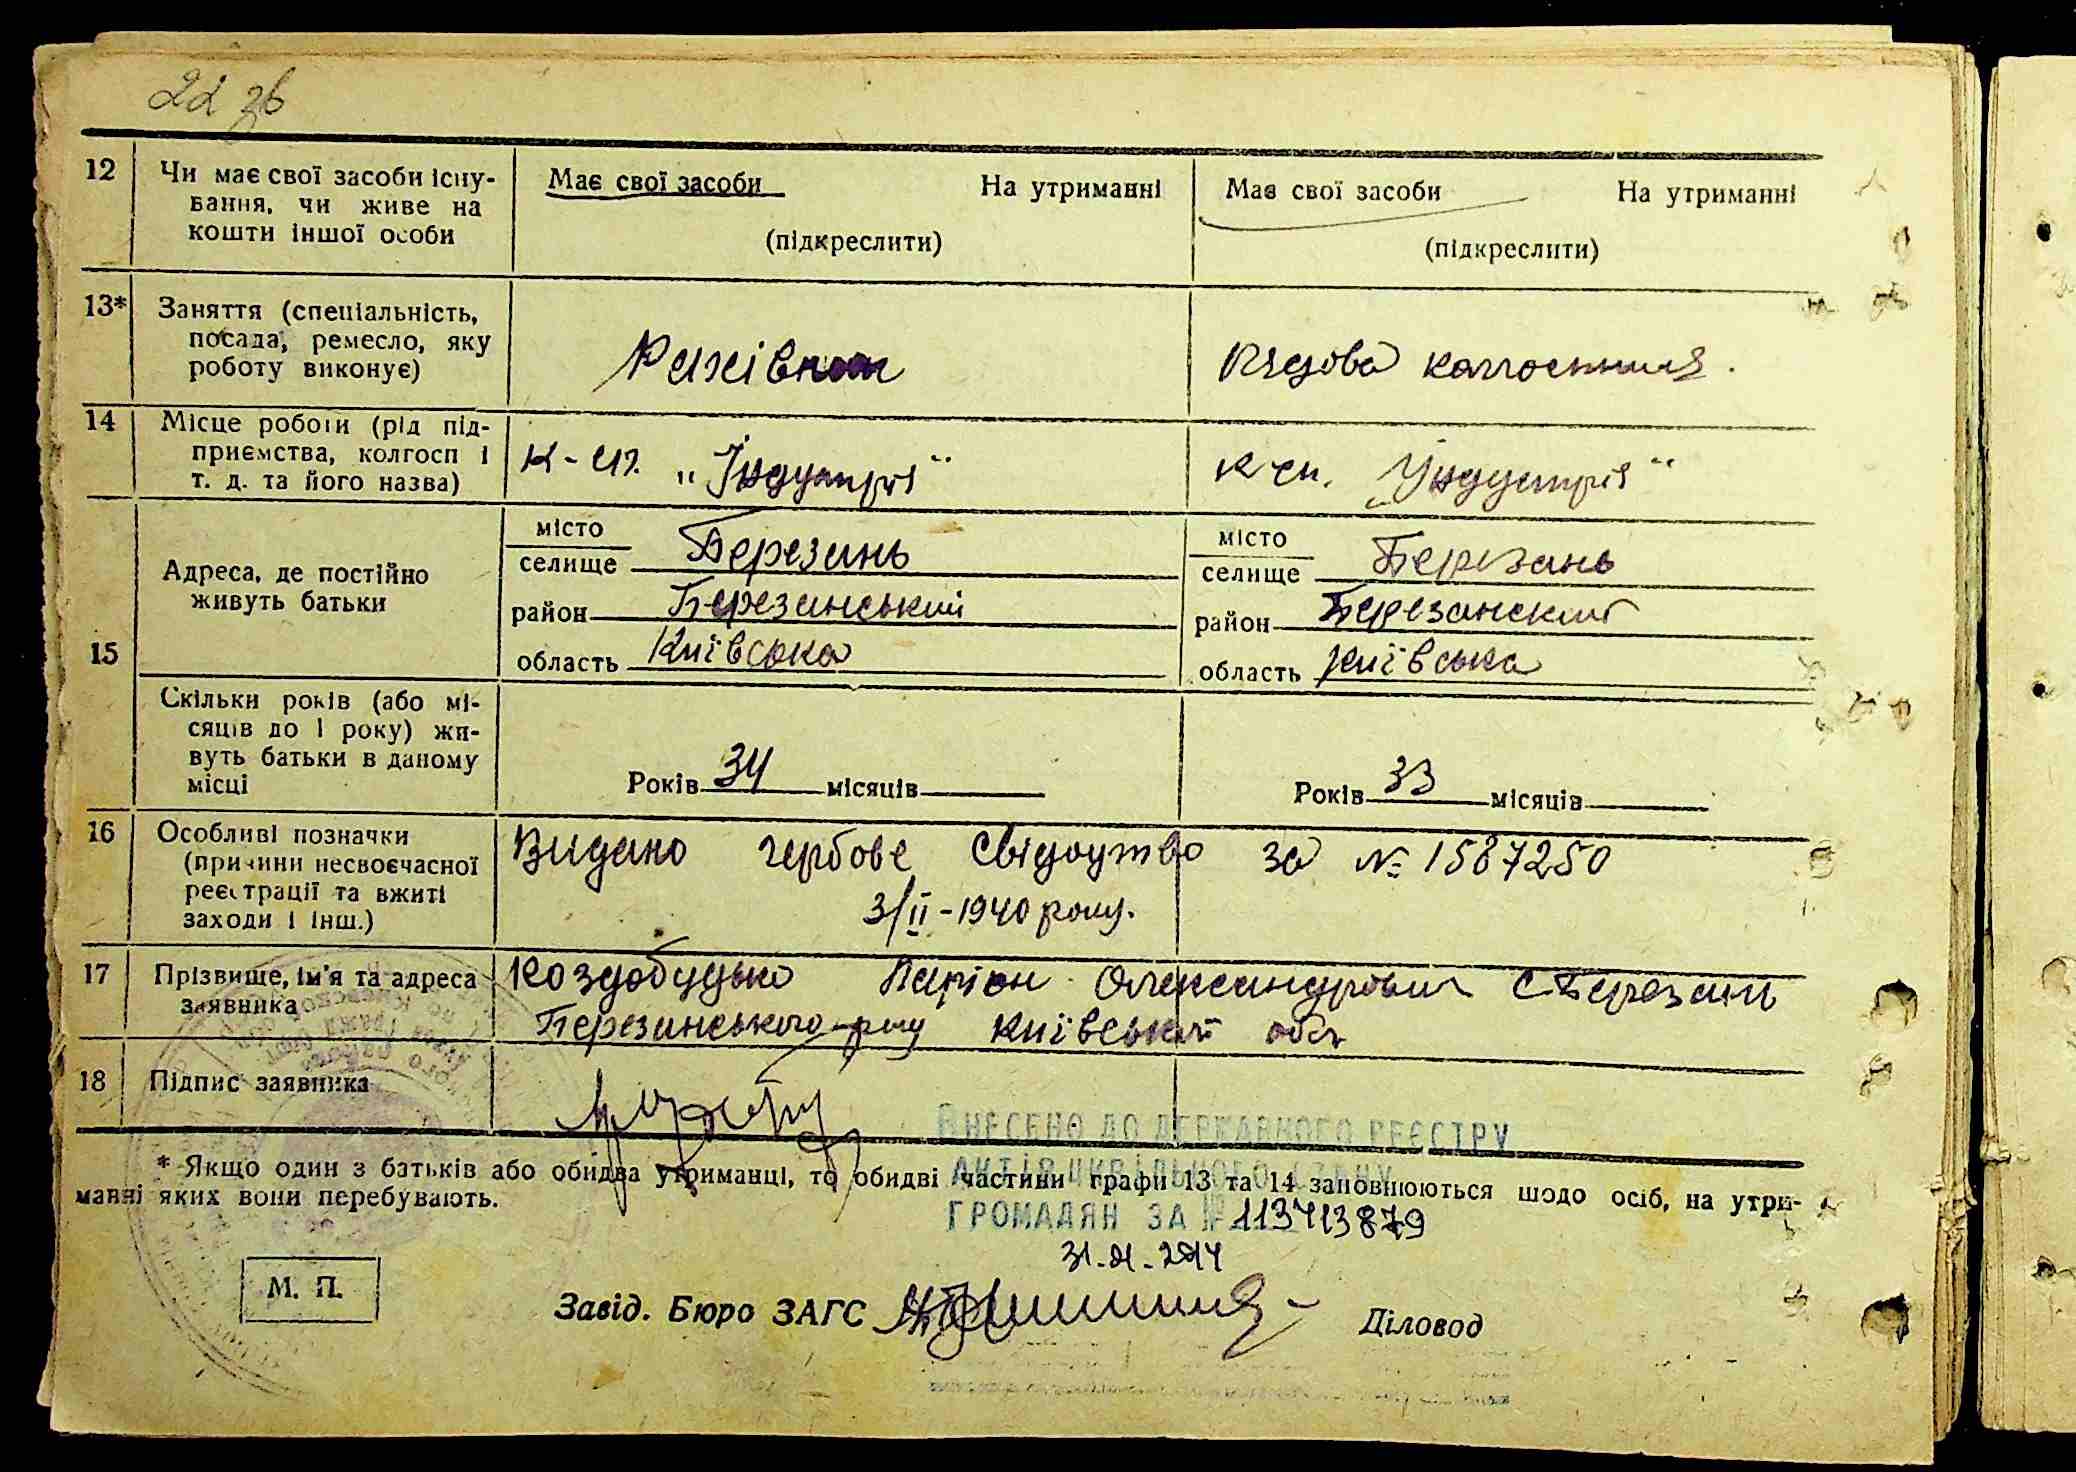 22 зв
12 Чи має свої засоби існу-
вання, чи живе на
кошти іншої особи
Має свої засоби На утриманні
(підкреслити)
Має свої засоби На утриманні
(підкреслити)
13* Заняття (спеціальність,
посада, ремесло, яку
роботу виконує)
Рахівник
Рядова колгоспниця.
14 Місце роботи (рід під-
приємства, колгосп і
т. д. та його назва)
К-сп. „Індустрія"
К сп. „Індустрія"
15 Адреса, де постійно
живуть батьки
місто
селище Березань
район Березанський
область Київська
місто
селище Березань
район Березанский
область Київська
Скільки років (або мі-
сяців до 1 року) жи-
вуть батьки в даному
місці
Років 34 місяців
Років 33 місяців
16 Особливі позначки
(причини несвоєчасної
реєстрації та вжиті
заходи і інш.)
Видано гербове свідоцтво за № 1587250
3/ІІ-1940 року.
17 Прізвище, ім'я та адреса
заявника
Коздобудько Ларіон Олександрович С. Березань
Березанського р-ну Київської обл
18 Підпис заявника
ВНЕСЕНО ДО ДЕРЖАВНОГО РЕЄСТРУ
АКТІВ ЦИВІЛЬНОГО СТАНУ
ГРОМАДЯН ЗА № 113713879
* Якщо один з батьків або обидва утриманці, то обидві частини графи 13 та 14 заповнюються щодо осіб, на утри-
манні яких вони перебувають.
М. П.
Завід. Бюро ЗАГС
Діловод